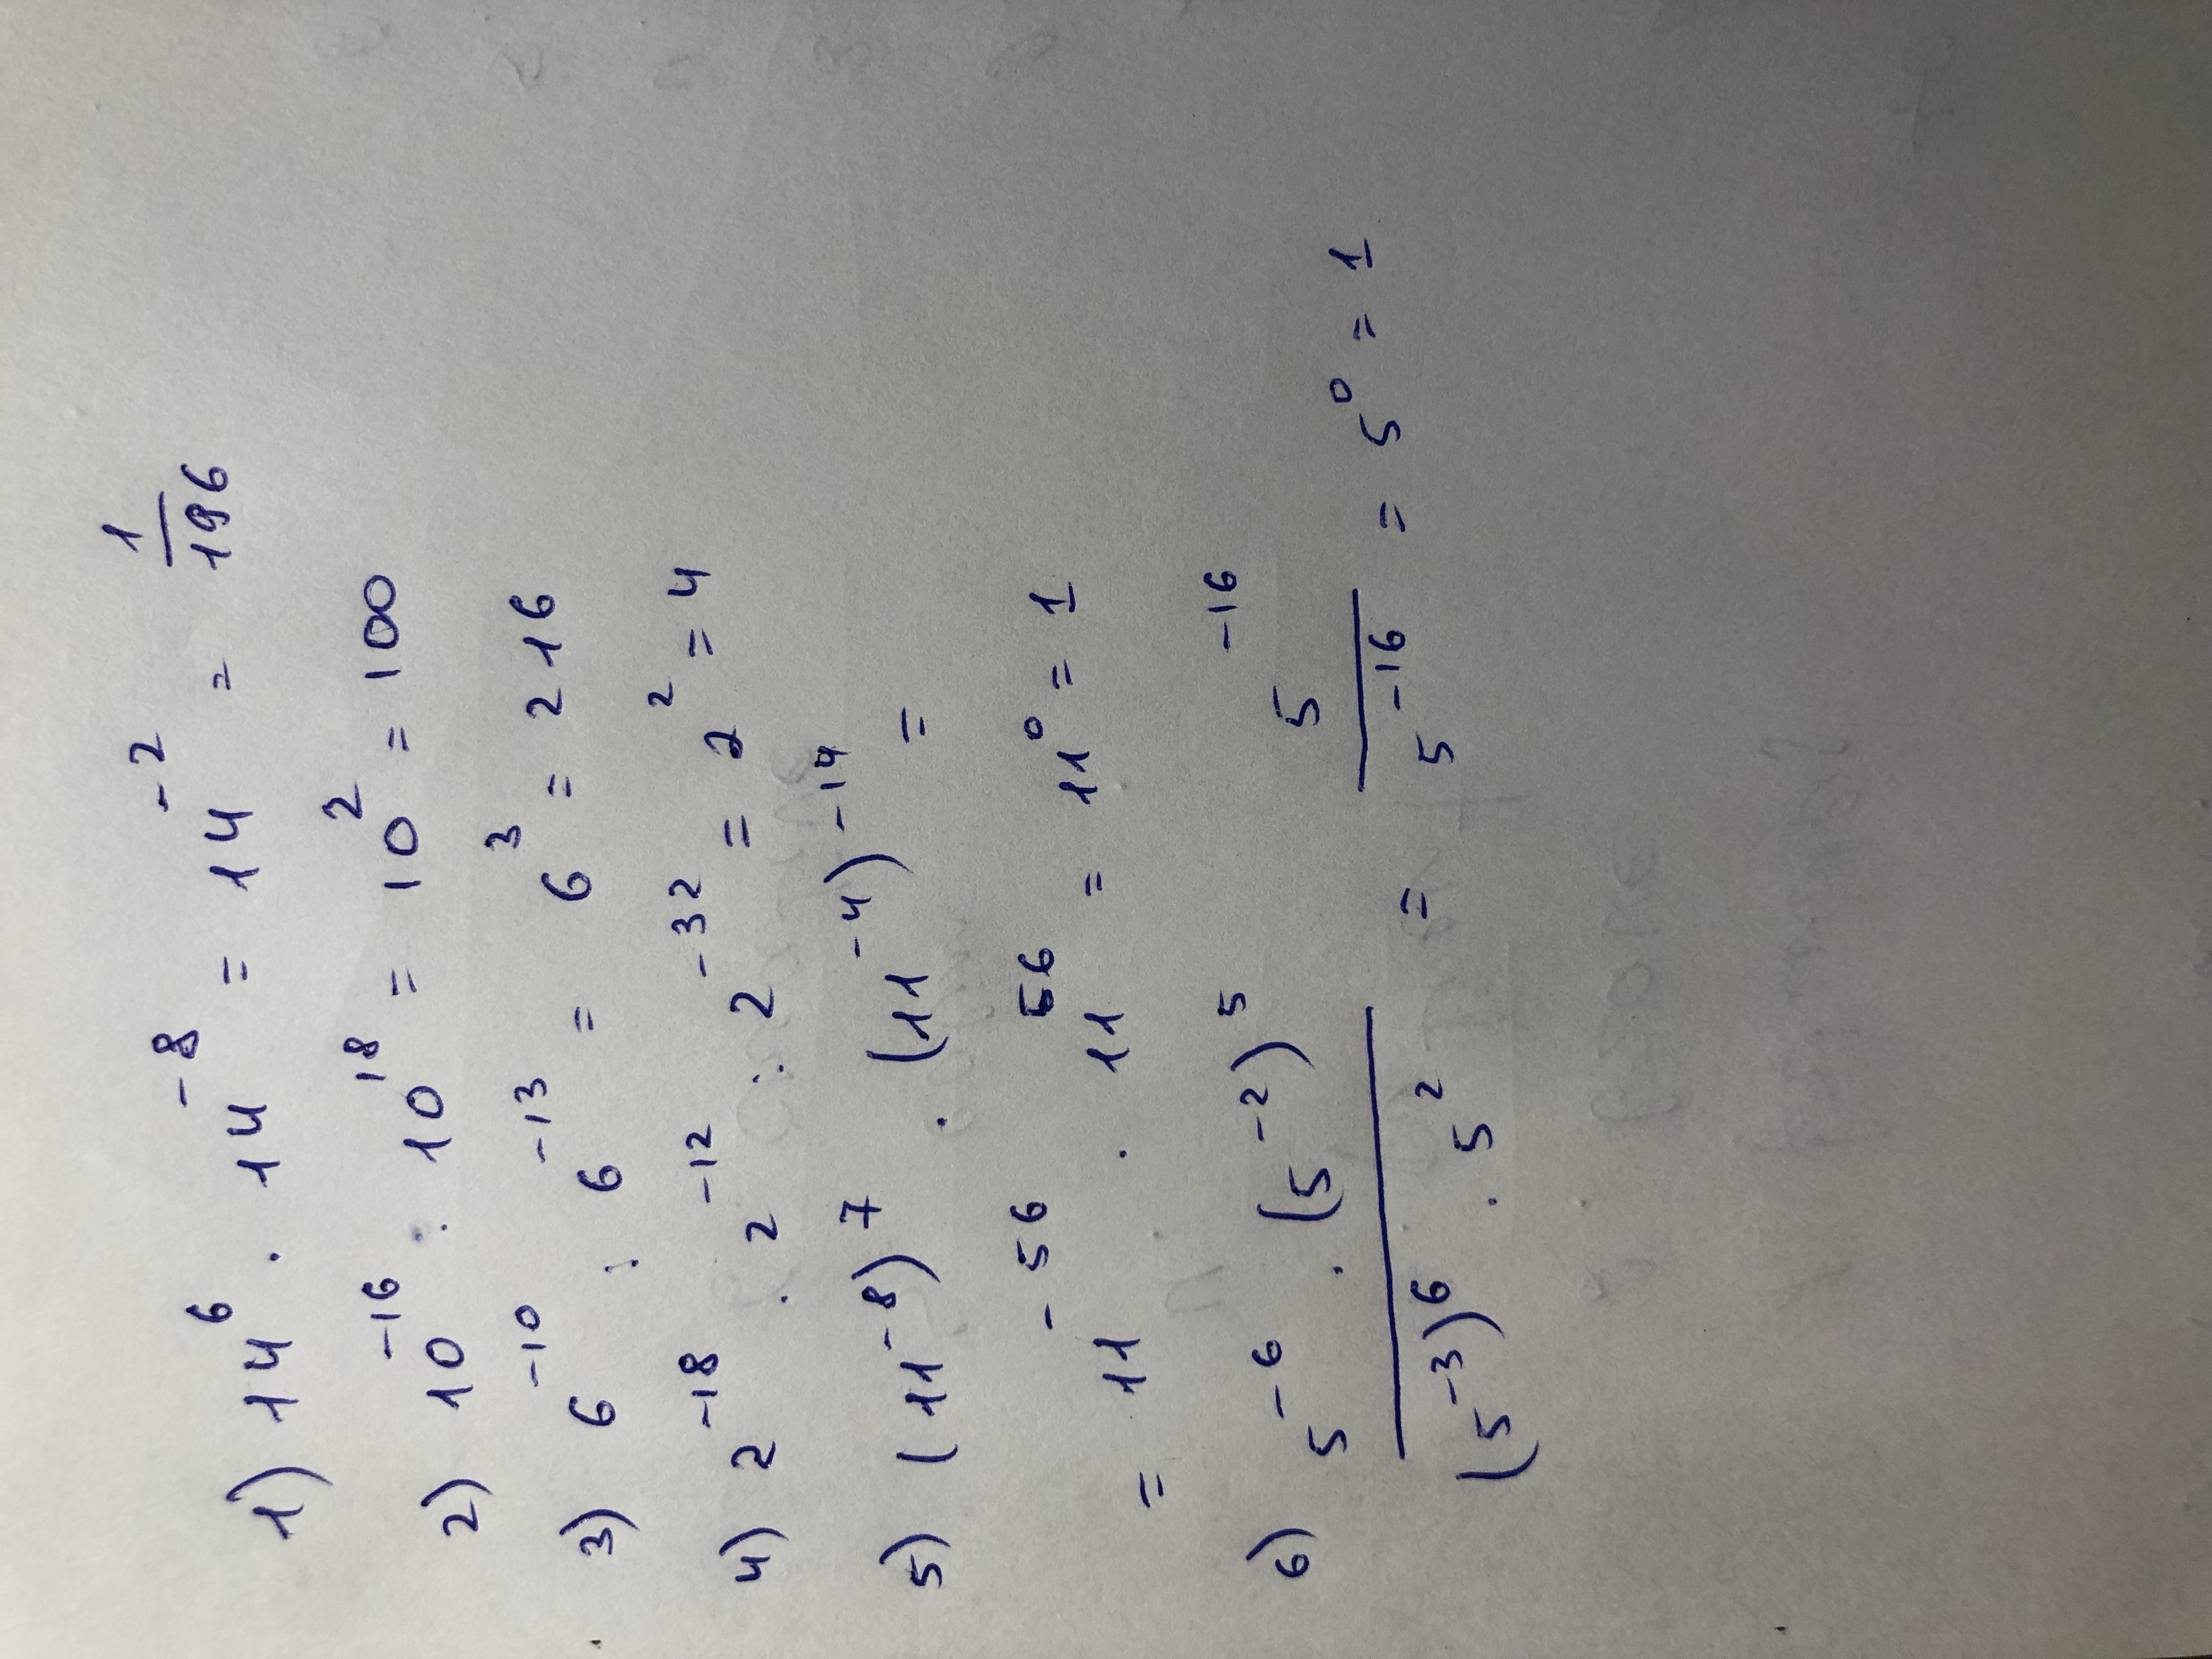 1) 14⁶ · 14⁻⁸ = 14⁻² = 1/196
2) 10⁻¹⁶ · 10¹⁸ = 10² = 100
3) 6⁻¹⁰ : 6⁻¹³ = 6³ = 216
4) 2⁻¹⁸ · 2⁻¹² : 2⁻³² = 2² = 4
5) (11⁻⁸)⁷ · (11⁻⁴)⁻¹⁴ =
= 11⁻⁵⁶ · 11⁵⁶ = 11⁰ = 1
6) (5⁻⁶ · (5⁻²)⁵)/((5⁻³)⁶ · 5²) = 5⁻¹⁶/5⁻¹⁶ = 5⁰ = 1